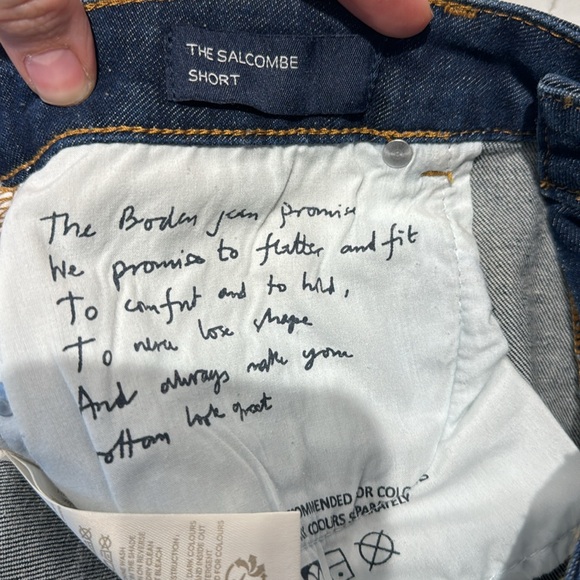 THE SALCOMBE
SHORT
The Boden jean promise
We promise to flatter and fit
To comfort and to hold,
To never lose shape
And always make your
bottom look great
OMMENDED FOR COLO
COLOURS SEPARATELY
WASH
SHADE
ON REVERSE
DRY CLEAN
BLEACH
STRUCTION:
DARK COLOURS
AND INSIDE OUT
TERGENT
FOR COLOURS